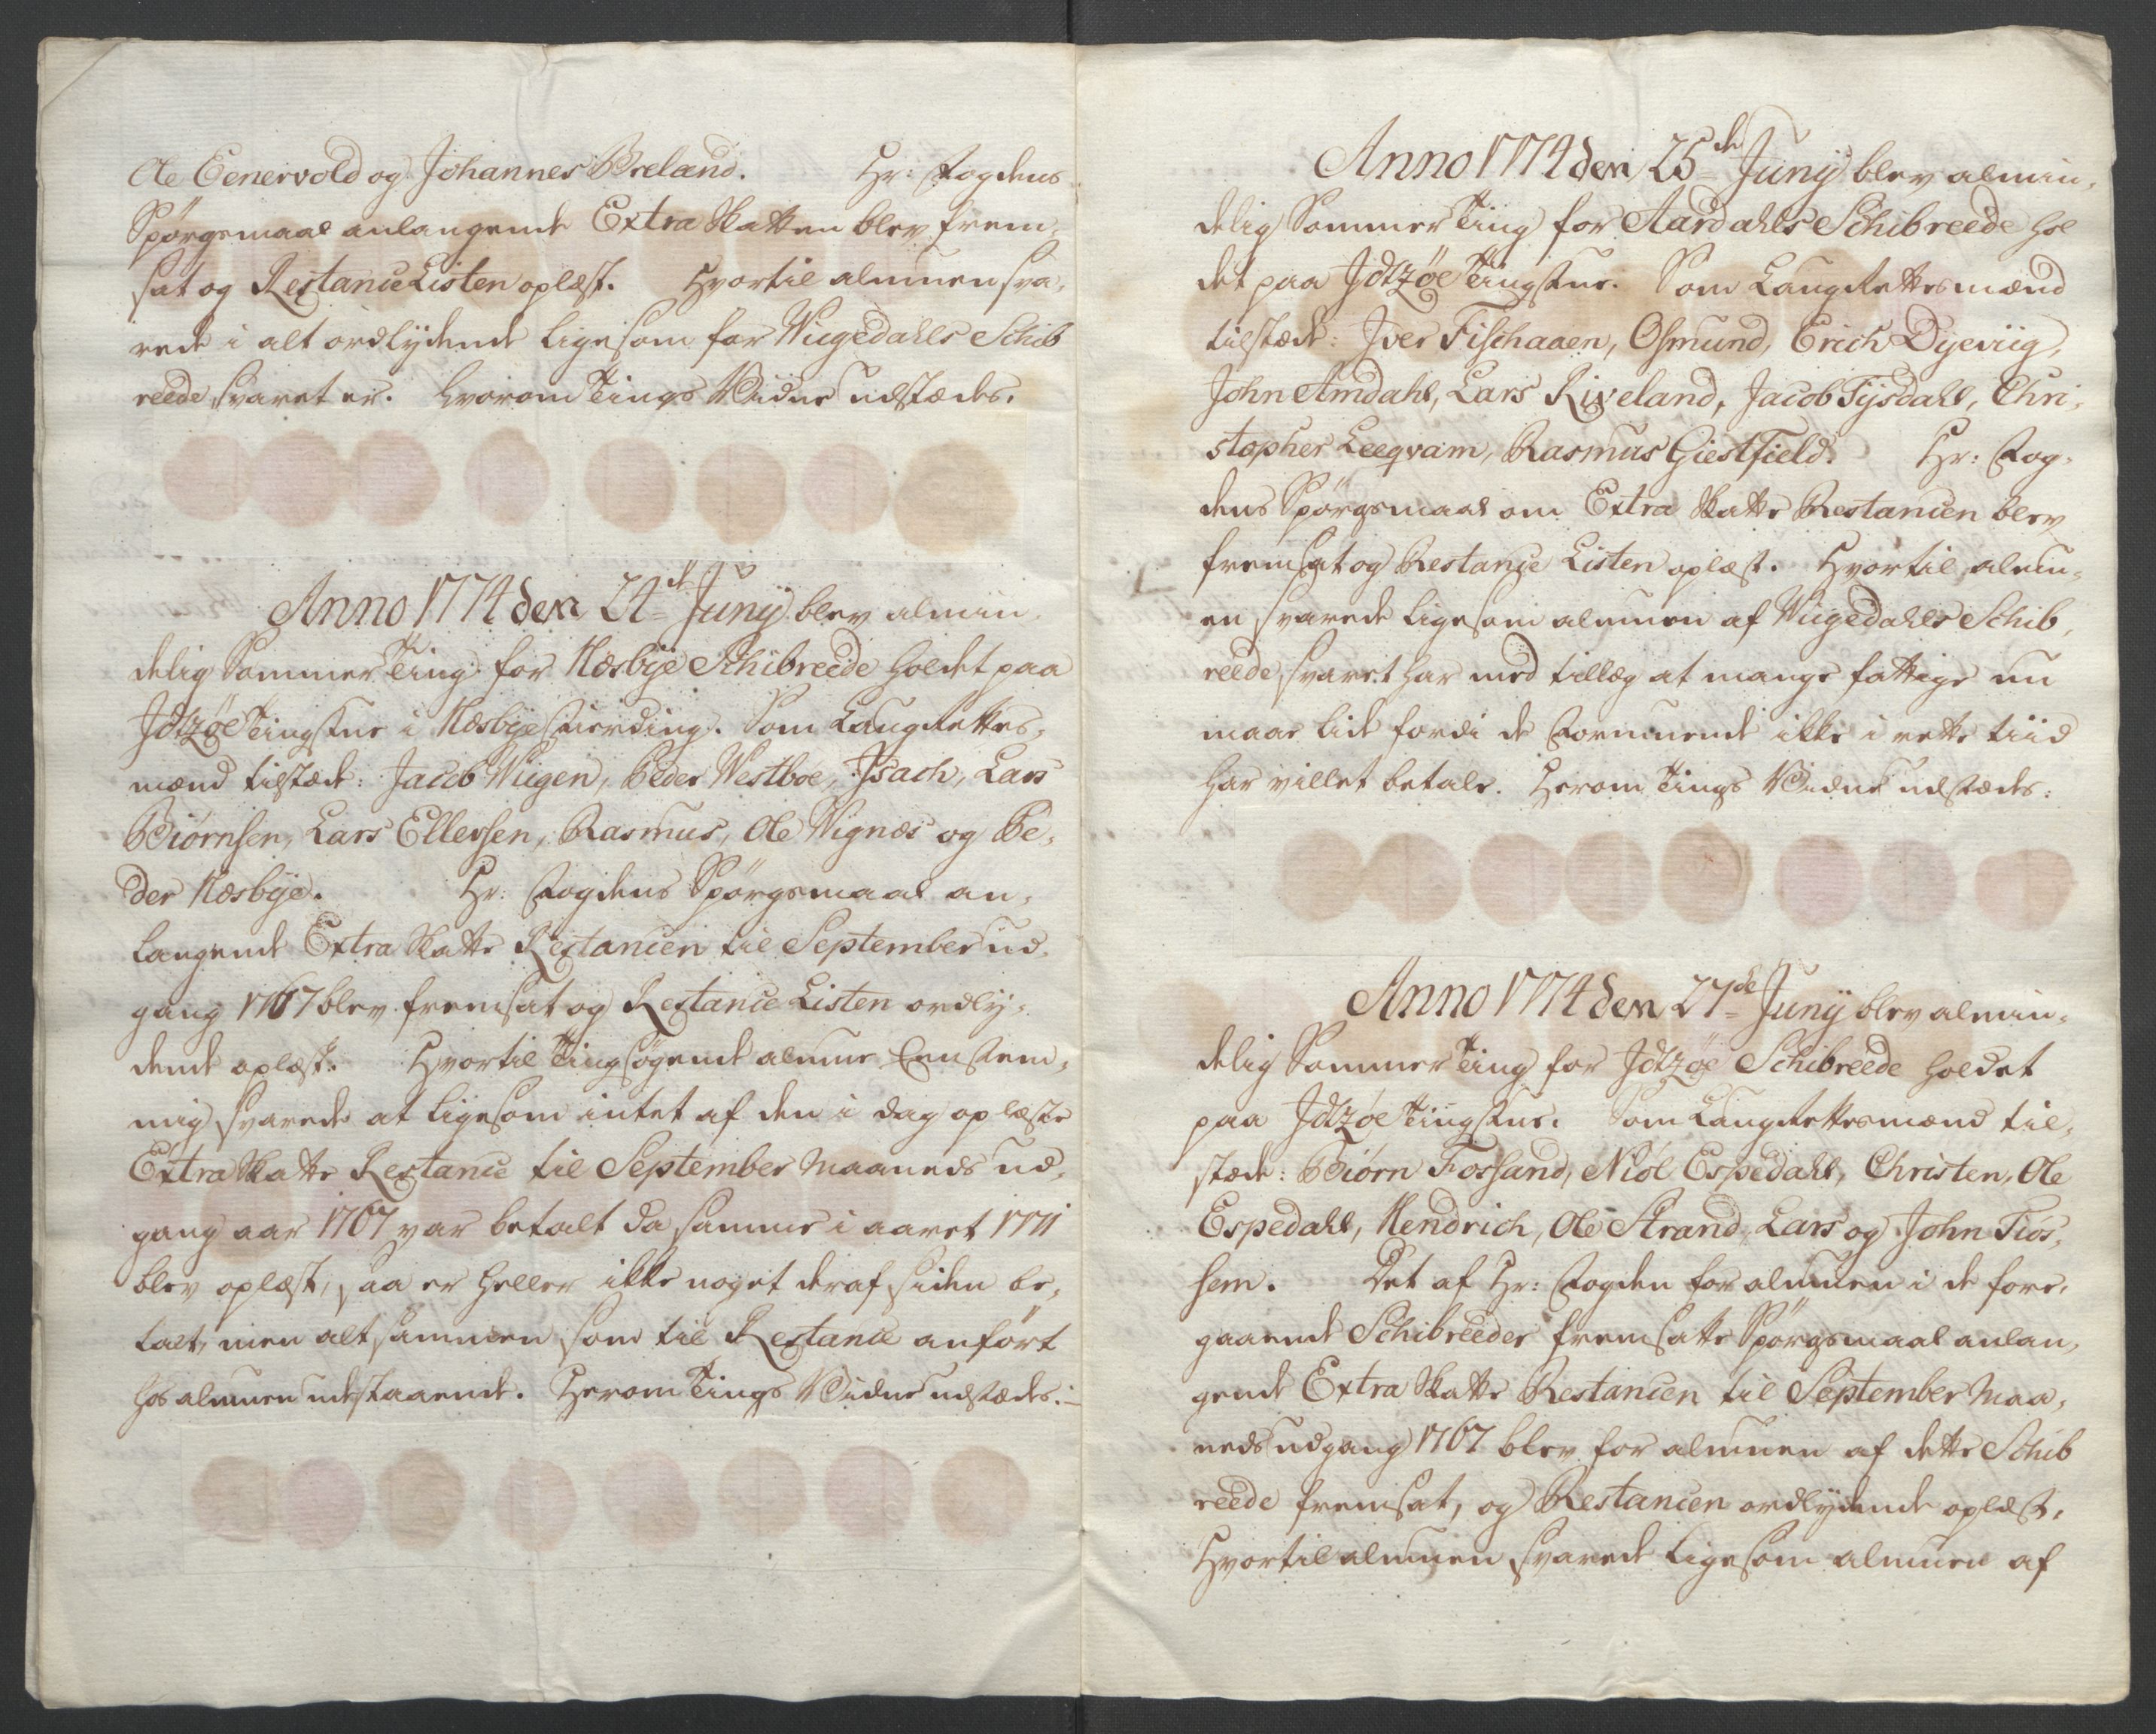 Ole Eenervold og Johannes Breland. Hr: Fogdens
Spörgsmaal anlangende Extra Skatten blev frem-
sat og Restance Listen oplæst. Hvortil almuen sva-
rede i alt ordlydende ligesom for Wiigedahls Schib
reede svaret er. hvorom Tings Vidne udstædes.
Anno 1774 den 24de Junÿ blev almin-
delig Sommer Ting for Næsbye Schibreede holdet paa
Jdtzøe Tingstue i Næsbye Fierding. Som Laugrettes-
mænd tilstæde: Jacob Wiigen, Peder Westboe, Jsach, Lars
Biørnsen, Lars Ellersen, Rasmus, Ole Wignæs og Pe-
der Næsbye. Hr: Fogdens Spörgsmaal an-
langende Extra Skatte Restancen til September ud-
gang 1767 blev fremsat og Restance Listen ordly-
dende oplæst. Hvortil Tingsøgende almue Eenstem-
mig svarede at ligesom intet af den i dag oplæste
Extra Skatte Restance til September Maaneds ud-
gang aar 1767 var betalt da samme i aaret 1771
blev oplæst, saa er heller ikke noget deraf siden be-
talt, men alt sammen som til Restance anført
hos almuen udestaaende. Herom Tings Vidne udstædes.
Anno 1774 den 25de Junÿ blev almin-
delig Sommer Ting for Aardahls Schibreede hol
det paa Jdtzøe Tingstue. Som Laugrettesmænd
tilstæde: Jver Fischaaen, Osmund, Erich Dyeviig,
John Amdahl, Lars Riveland, Jacob Tysdahl, Chri-
stopher Leeqvam, Rasmus Giestfield. Hr: Fog-
dens Spörgsmaal om Extra Skatte Restancen blev
fremsat og Restance Listen oplæst. Hvortil almu-
en svarede ligesom almuen af Wiigedahls Schib-
reede svaret har med tillæg at mange fattige nu
maae lide fordi de Formuende ikke i rette tiid
har villet betale. Herom Tings Vidne udstædes:
Anno 1774 den 27de Junÿ blev almin-
delig Sommer Ting for Jdtzøe Schibreede holdet
paa Jdtzøe Tingstue. Som Laugrettesmænd til-
stæde: Biørn Fossand, Niøl Espedahl, Christen, Ole
Espedahl, Hendrich, Ole Strand, Lars og John Tiøs-
hem. Det af Hr: Fogden for almuen i de fore-
gaaende Schibreeder fremsatte Spørgsmaal anlan-
gende Extra Skatte Restancen til September Maa-
neds udgang 1767 blev for almuen af dette Schib
reede fremsat, og Restancen ordlydende oplæst.
Hvortil almuen svarede ligesom almuen af